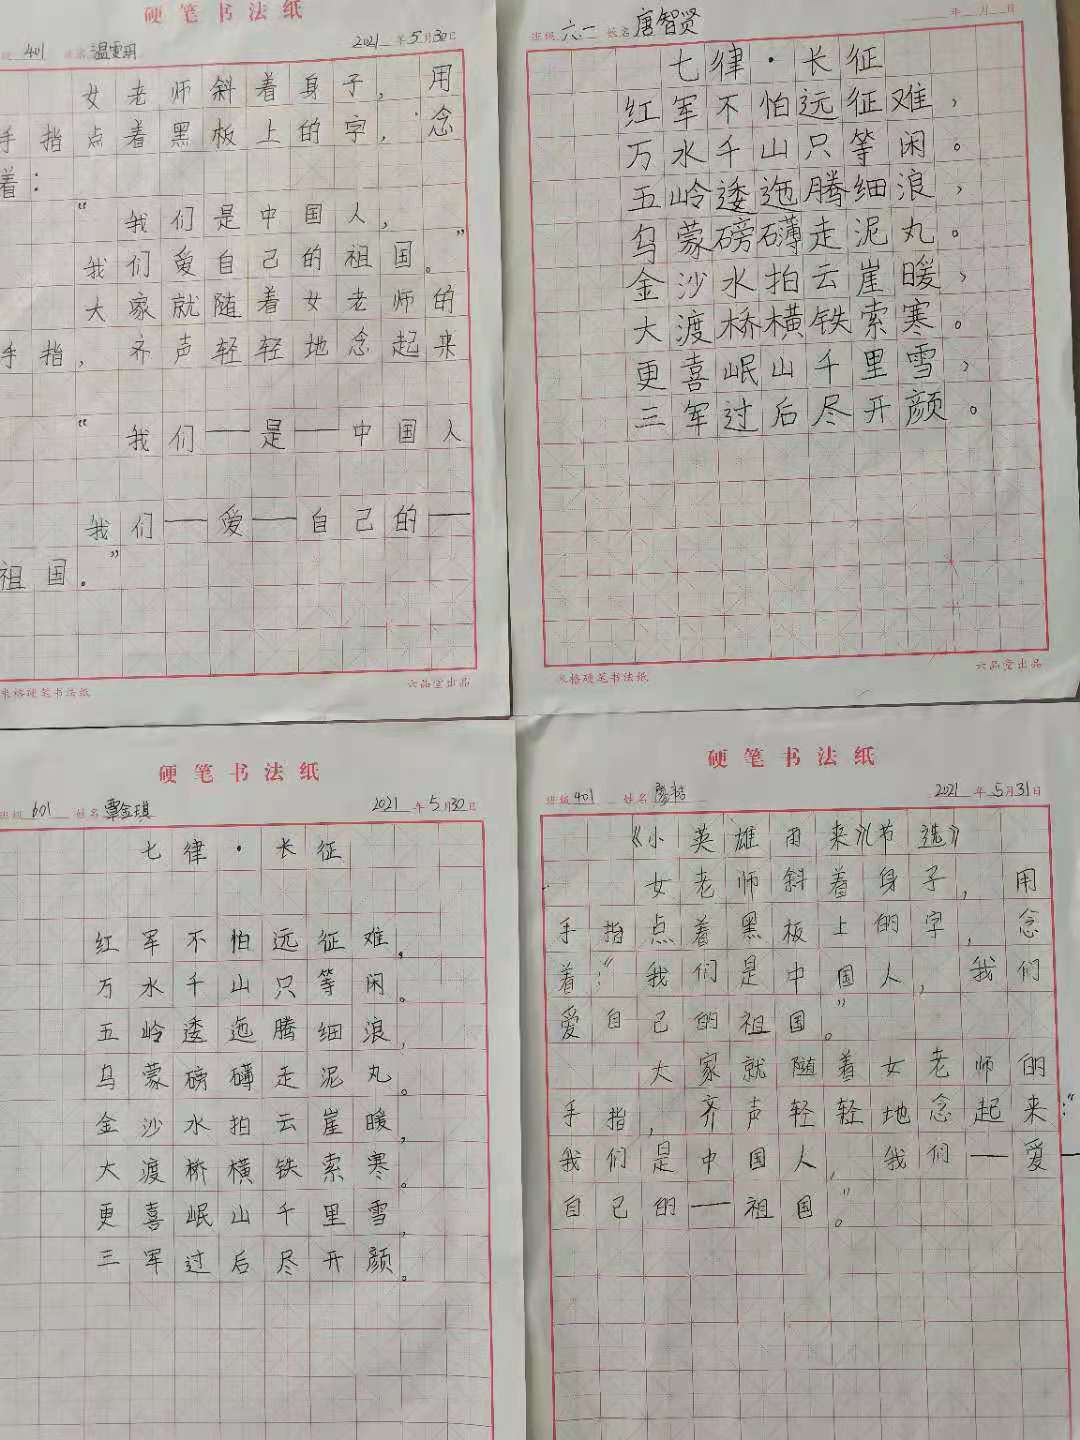 硬笔书法纸
级 401 姓名 温雯玥 2021年5月30日
女老师斜着身子，用
手指点着黑板上的字，念
着：
“我们是中国人，
我们爱自己的祖国。”
大家就随着女老师的
手指，齐声轻轻地念起来
“我们——是——中国人
我们——爱——自己的——
祖国．”
米格硬笔书法纸 六品堂出品
班级 六一 姓名 唐智贤 年 月 日
七律·长征
红军不怕远征难，
万水千山只等闲。
五岭逶迤腾细浪，
乌蒙磅礴走泥丸。
金沙水拍云崖暖，
大渡桥横铁索寒。
更喜岷山千里雪，
三军过后尽开颜。
米格硬笔书法纸 六品堂出品
硬笔书法纸
班级 601 姓名 覃金琪 2021年5月30日
七律·长征
红军不怕远征难，
万水千山只等闲。
五岭逶迤腾细浪，
乌蒙磅礴走泥丸。
金沙水拍云崖暖，
大渡桥横铁索寒。
更喜岷山千里雪，
三军过后尽开颜。
硬笔书法纸
班级 401 姓名 廖 2021年5月31日
《小英雄雨来》《节选》
女老师斜着身子，用
手指点着黑板上的字，念
着：“我们是中国人，我们
爱自己的祖国。”
大家就随着女老师的
手指，齐声轻轻地念起来：“
我们是中国人，我们——爱
自己的——祖国。”